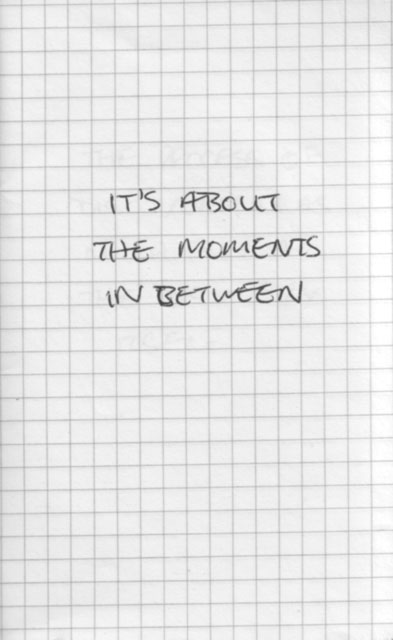 IT'S ABOUT
THE MOMENTS
IN BETWEEN